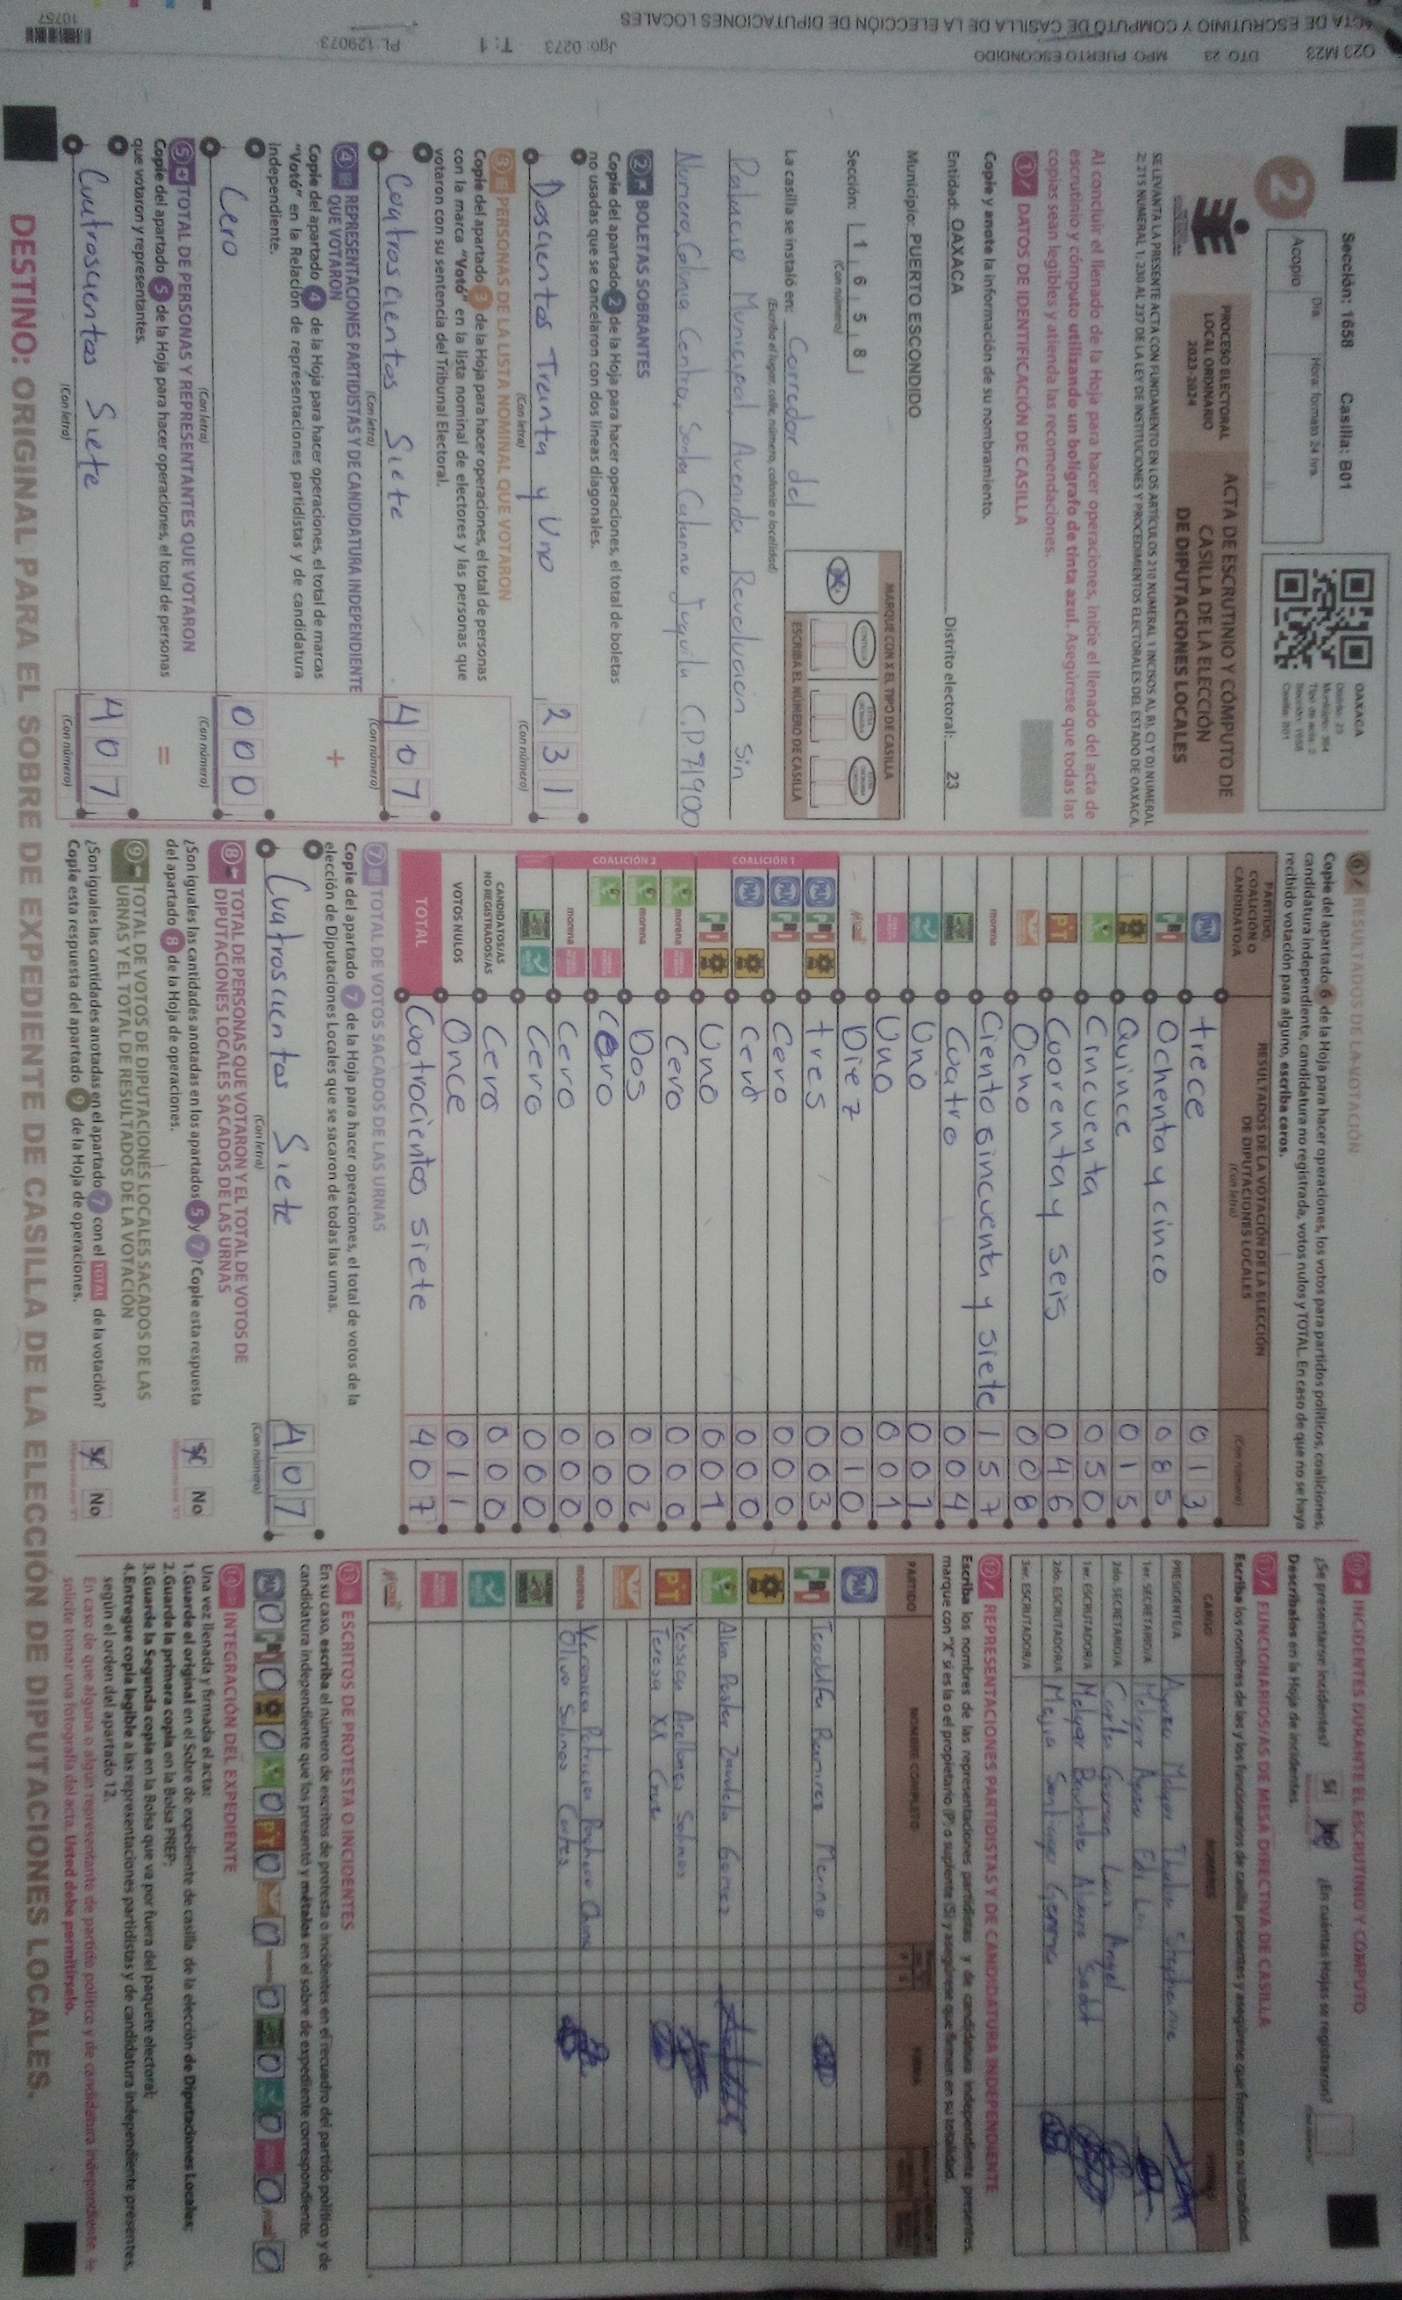 Sección: 1658 Casilla: B01
Día Hora: formato 24 hrs.
Acopio
2
OAXACA
PROCESO ELECTORAL
LOCAL ORDINARIO
2023-2024
ACTA DE ESCRUTINIO Y CÓMPUTO DE
CASILLA DE LA ELECCIÓN
DE DIPUTACIONES LOCALES
Al concluir el llenado de la Hoja para hacer operaciones, inicie el llenado del acta de
escrutinio y cómputo utilizando un bolígrafo de tinta azul. Asegúrese que todas las
copias sean legibles y atienda las recomendaciones.
1 DATOS DE IDENTIFICACIÓN DE CASILLA
Copie y anote la información de su nombramiento.
Entidad: OAXACA Distrito electoral: 23
Municipio: PUERTO ESCONDIDO
Sección: 1 6 5 8
(Con número)
MARQUE CON X EL TIPO DE CASILLA
ESCRIBA EL NÚMERO DE CASILLA
La casilla se instaló en: Corredor del
(Escriba el lugar, calle, número, colonia o localidad)
Palacio Municipal, Avenida Revolución Sin
Numero, Colonia Centro, Santa Catarina Juquila C.P 71900
2 BOLETAS SOBRANTES
Copie del apartado 2 de la Hoja para hacer operaciones, el total de boletas
no usadas que se cancelaron con dos líneas diagonales.
Doscientos Treinta y Uno 231
(Con letra) (Con número)
3 PERSONAS DE LA LISTA NOMINAL QUE VOTARON
Copie del apartado 3 de la Hoja para hacer operaciones, el total de personas
con la marca "Votó" en la lista nominal de electores y las personas que
votaron con su sentencia del Tribunal Electoral.
Cuatroscientos Siete 407
(Con letra) (Con número)
4 REPRESENTACIONES PARTIDISTAS Y DE CANDIDATURA INDEPENDIENTE
QUE VOTARON +
Copie del apartado 4 de la Hoja para hacer operaciones, el total de marcas
"Votó" en la Relación de representaciones partidistas y de candidatura
independiente.
Cero 000
(Con letra) (Con número)
5 TOTAL DE PERSONAS Y REPRESENTANTES QUE VOTARON
Copie del apartado 5 de la Hoja para hacer operaciones, el total de personas =
que votaron y representantes.
Cuatroscientos Siete 407
(Con letra) (Con número)
6 RESULTADOS DE LA VOTACIÓN
Copie del apartado 6 de la Hoja para hacer operaciones, los votos para partidos políticos, coaliciones,
candidatura independiente, candidatura no registrada, votos nulos y TOTAL. En caso de que no se haya
recibido votación para alguno, escriba ceros.
PARTIDO,
COALICIÓN O
CANDIDATO/A
RESULTADOS DE LA VOTACIÓN DE LA ELECCIÓN
DE DIPUTACIONES LOCALES
(Con letra) (Con número)
PAN trece 013
PRI Ochenta y cinco 085
PRD Quince 015
Cincuenta 050
PT Coorenta y seis 046
Ocho 008
morena Ciento sincuenta y siete 157
Cuatro 004
Uno 001
Uno 001
Diez 010
COALICIÓN 1
PAN PRI PRD tres 003
PAN PRI Cero 000
PAN PRD Cero 000
PRI PRD Uno 001
COALICIÓN 2
morena Cero 000
morena Dos 002
Cero 000
morena Cero 000
Cero 000
CANDIDATOS/AS
NO REGISTRADOS/AS Cero 000
VOTOS NULOS Once 011
TOTAL Cootrocientos siete 407
7 TOTAL DE VOTOS SACADOS DE LAS URNAS
Copie del apartado 7 de la Hoja para hacer operaciones, el total de votos de la
elección de Diputaciones Locales que se sacaron de todas las urnas.
Cuatroscientos Siete 407
(Con letra) (Con número)
8 TOTAL DE PERSONAS QUE VOTARON Y EL TOTAL DE VOTOS DE
DIPUTACIONES LOCALES SACADOS DE LAS URNAS
¿Son iguales las cantidades anotadas en los apartados 5 y 7? Copie esta respuesta
del apartado 8 de la Hoja de operaciones. Sí No
9 TOTAL DE VOTOS DE DIPUTACIONES LOCALES SACADOS DE LAS
URNAS Y EL TOTAL DE RESULTADOS DE LA VOTACIÓN
¿Son iguales las cantidades anotadas en el apartado 7 con el TOTAL de la votación?
Copie esta respuesta del apartado 9 de la Hoja de operaciones. Sí No
10 INCIDENTES DURANTE EL ESCRUTINIO Y CÓMPUTO
¿Se presentaron incidentes? Sí No ¿En cuántas Hojas se registraron?
Descríbalos en la Hoja de incidentes.
11 FUNCIONARIOS/AS DE MESA DIRECTIVA DE CASILLA
Escriba los nombres de las y los funcionarios de casilla presentes y asegúrese que firmen en su totalidad.
CARGO NOMBRES FIRMAS
PRESIDENTE/A
1er. SECRETARIO/A
2do. SECRETARIO/A
1er. ESCRUTADOR/A
2do. ESCRUTADOR/A
3er. ESCRUTADOR/A
12 REPRESENTACIONES PARTIDISTAS Y DE CANDIDATURA INDEPENDIENTE
Escriba los nombres de las representaciones partidistas y de candidatura independiente presentes,
marque con "X" si es la o el propietario (P) o suplente (S) y asegúrese que firmen en su totalidad.
PARTIDO NOMBRE COMPLETO FIRMA
PAN
PRI
PRD
PT Teresa XX Cruz
morena
13 ESCRITOS DE PROTESTA O INCIDENTES
En su caso, escriba el número de escritos de protesta o incidentes en el recuadro del partido político y de
candidatura independiente que los presentó y métalos en el sobre de expediente correspondiente.
14 INTEGRACIÓN DEL EXPEDIENTE
Una vez llenada y firmada el acta:
1.Guarde el original en el Sobre de expediente de casilla de la elección de Diputaciones Locales;
2.Guarde la primera copia en la Bolsa PREP;
3.Guarde la Segunda copia en la Bolsa que va por fuera del paquete electoral;
4.Entregue copia legible a las representaciones partidistas y de candidatura independiente presentes,
según el orden del apartado 12.
En caso de que alguna o algún representante de partido político y de candidatura independiente, le
solicite tomar una fotografía del acta. Usted debe permitírselo.
DESTINO: ORIGINAL PARA EL SOBRE DE EXPEDIENTE DE CASILLA DE LA ELECCIÓN DE DIPUTACIONES LOCALES.
O23 M23 DTO 23 MPO PUERTO ESCONDIDO
ACTA DE ESCRUTINIO Y COMPUTO DE CASILLA DE LA ELECCIÓN DE DIPUTACIONES LOCALES
Jgo: 0273 T: 1 PL: 129073
10757